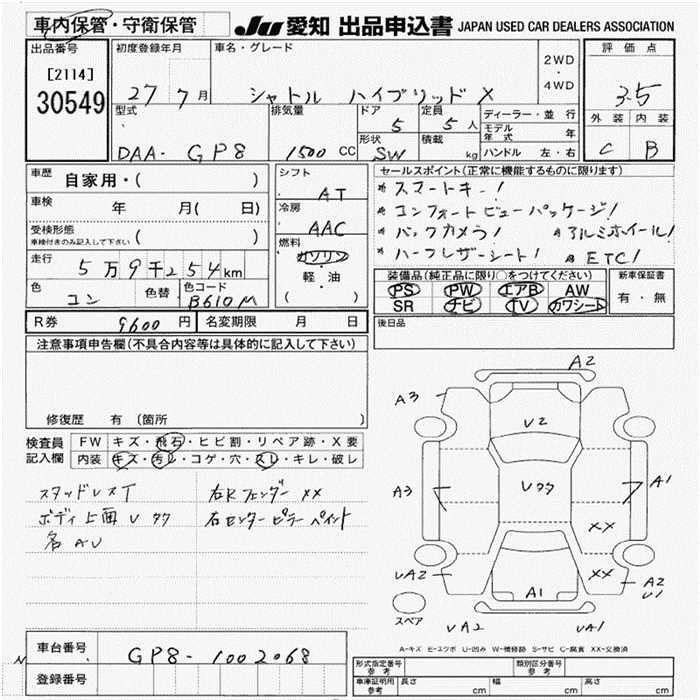 車内保管・守衛保管 JU 愛知 出品申込書 JAPAN USED CAR DEALERS ASSOCIATION
出品番号
[2114]
30549
初度登録年月
27 7月
車名・グレード
シャトル ハイブリッド X
2WD
・
4WD
評価点
3.5
外装 内装
C B
型式
DAA- GP8
排気量
1500 CC
ドア
5
定員
5人
形状
SW
積載
kg
ディーラー・並行
モデル年式 年
ハンドル 左・右
車歴 自家用・( )
車検 年 月(日)
受検形態
車検付きのみ記入して下さい ( )
走行 5万9千254km
色 コン 色替 色コード B610M
シフト
AT
冷房
AAC
燃料
ガソリン
軽・油
( )
セールスポイント(正常に機能するものに限ります)
スマートキー!
コンフォートビューパッケージ!
バックカメラ! アルミホイール!
ハーフレザーシート! ETC!
装備品(純正品に限り○をつけてください)
PS PW エアB AW
SR ナビ TV カワシート
新車保証書
有・無
後日品
R券 9600円 名変期限 月 日
注意事項申告欄(不具合内容等は具体的に記入して下さい)
修復歴 有 (箇所 )
検査員記入欄
FW キズ・飛石・ヒビ割・リペア跡・X要
内装 キズ・汚レ・コゲ・穴・スレ・キレ・破レ
スタッドレスT 右Rフェンダー XX
ボディ上面 U タタ 右センターピラー ペイント
各 AU
A2
A3
V2
A3
Uタタ
A1
XX
XX
UA2
A1
A2
U1
スペア
UA2
UA1
A-キズ E-エクボ U-凹み W-補修跡 S-サビ C-腐食 XX-交換済
車台番号 GP8-1002068
登録番号
形式指定番号
参考
類別区分番号
参考
車庫証明用
参考
長さ cm 幅 cm 高さ cm